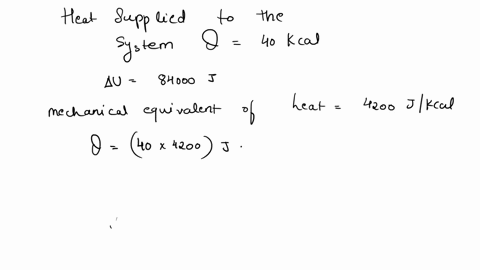 Heat Supplied to the
System Q = 40 Kcal
ΔU = 84000 J
mechanical equivalent of heat = 4200 J/Kcal
Q = (40 x 4200) J.